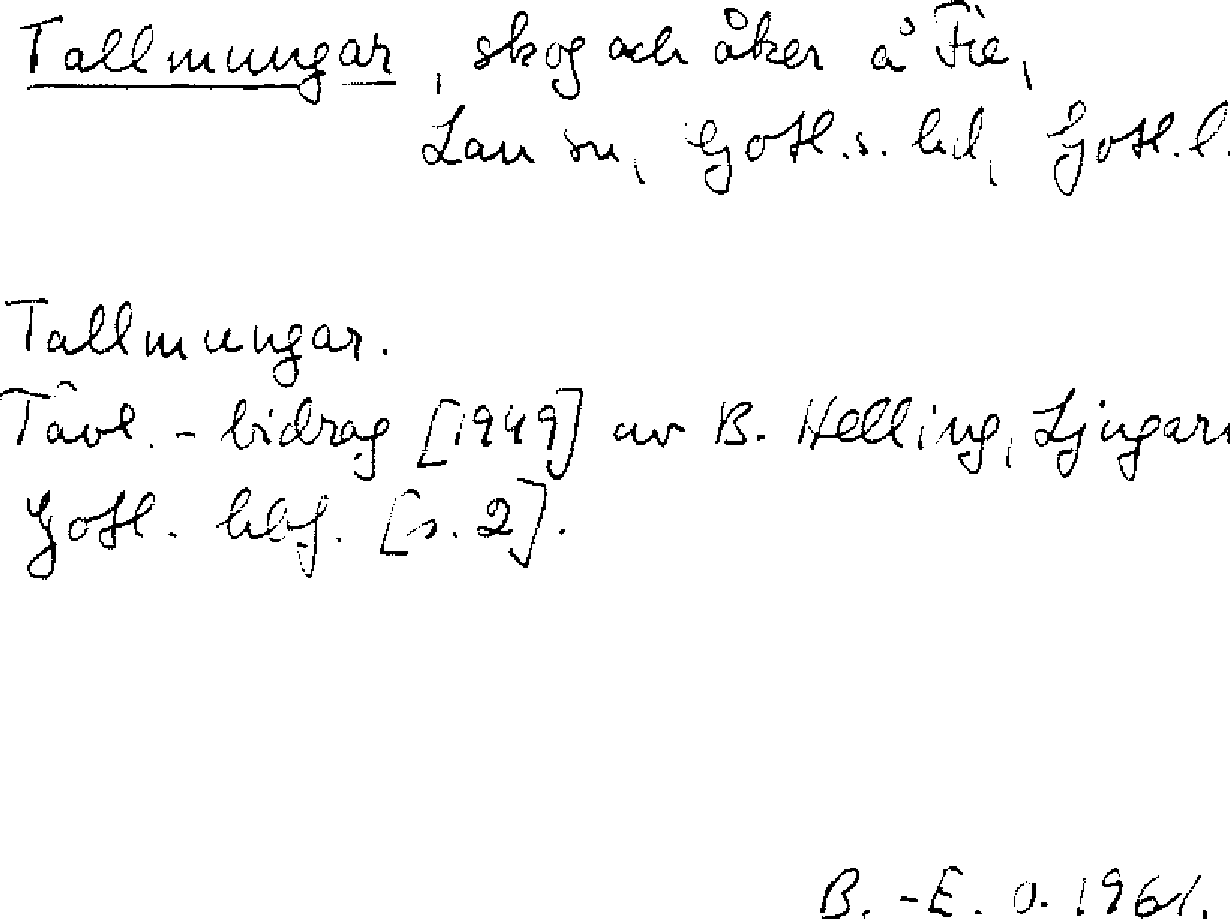 Tallmungar, skog och åker å Fie,
Lau sn, Gotl.s. hd, Gotl.l.
Tallmungar.
Tävl.-bidrag [1949] av B. Helling, Ljugarn
Gotl. hbf. [s. 2].
B.-E. O. 1961.